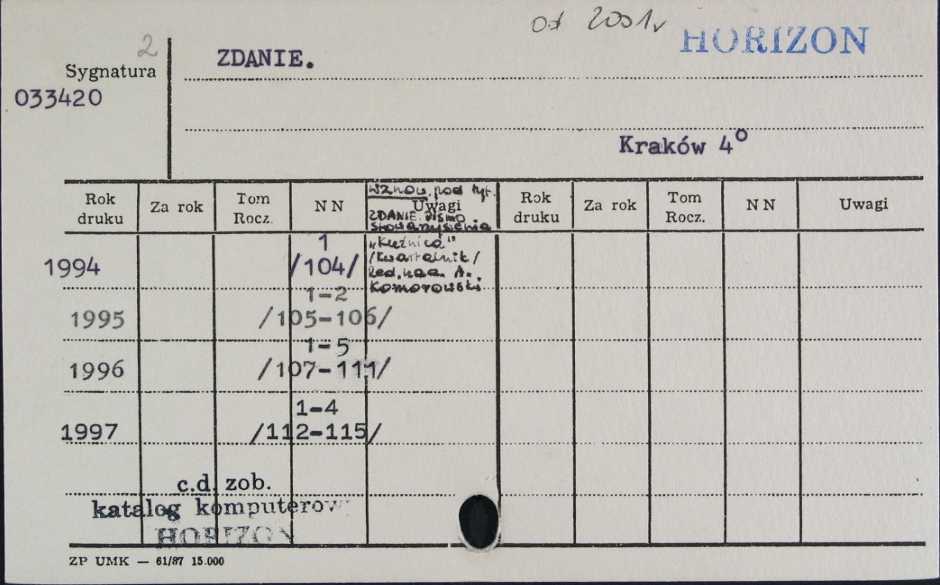 od 2001
HORIZON
2
ZDANIE.
Sygnatura
033420
Kraków 4°
Rok druku Za rok Tom Rocz. N N Uwagi Rok druku Za rok Tom Rocz. N N Uwagi
Wznow. pod tyt.
ZDANIE. Pismo
stowarzyszenia
„Kuźnica"
/Kwartalnik/
Red. nac. A.
Komorowski.
1
1994 /104/
1-2
1995 /105-106/
1-5
1996 /107-111/
1-4
1997 /112-115/
c.d. zob.
katalog komputerow
HORIZON
ZP UMK — 61/87 15.000